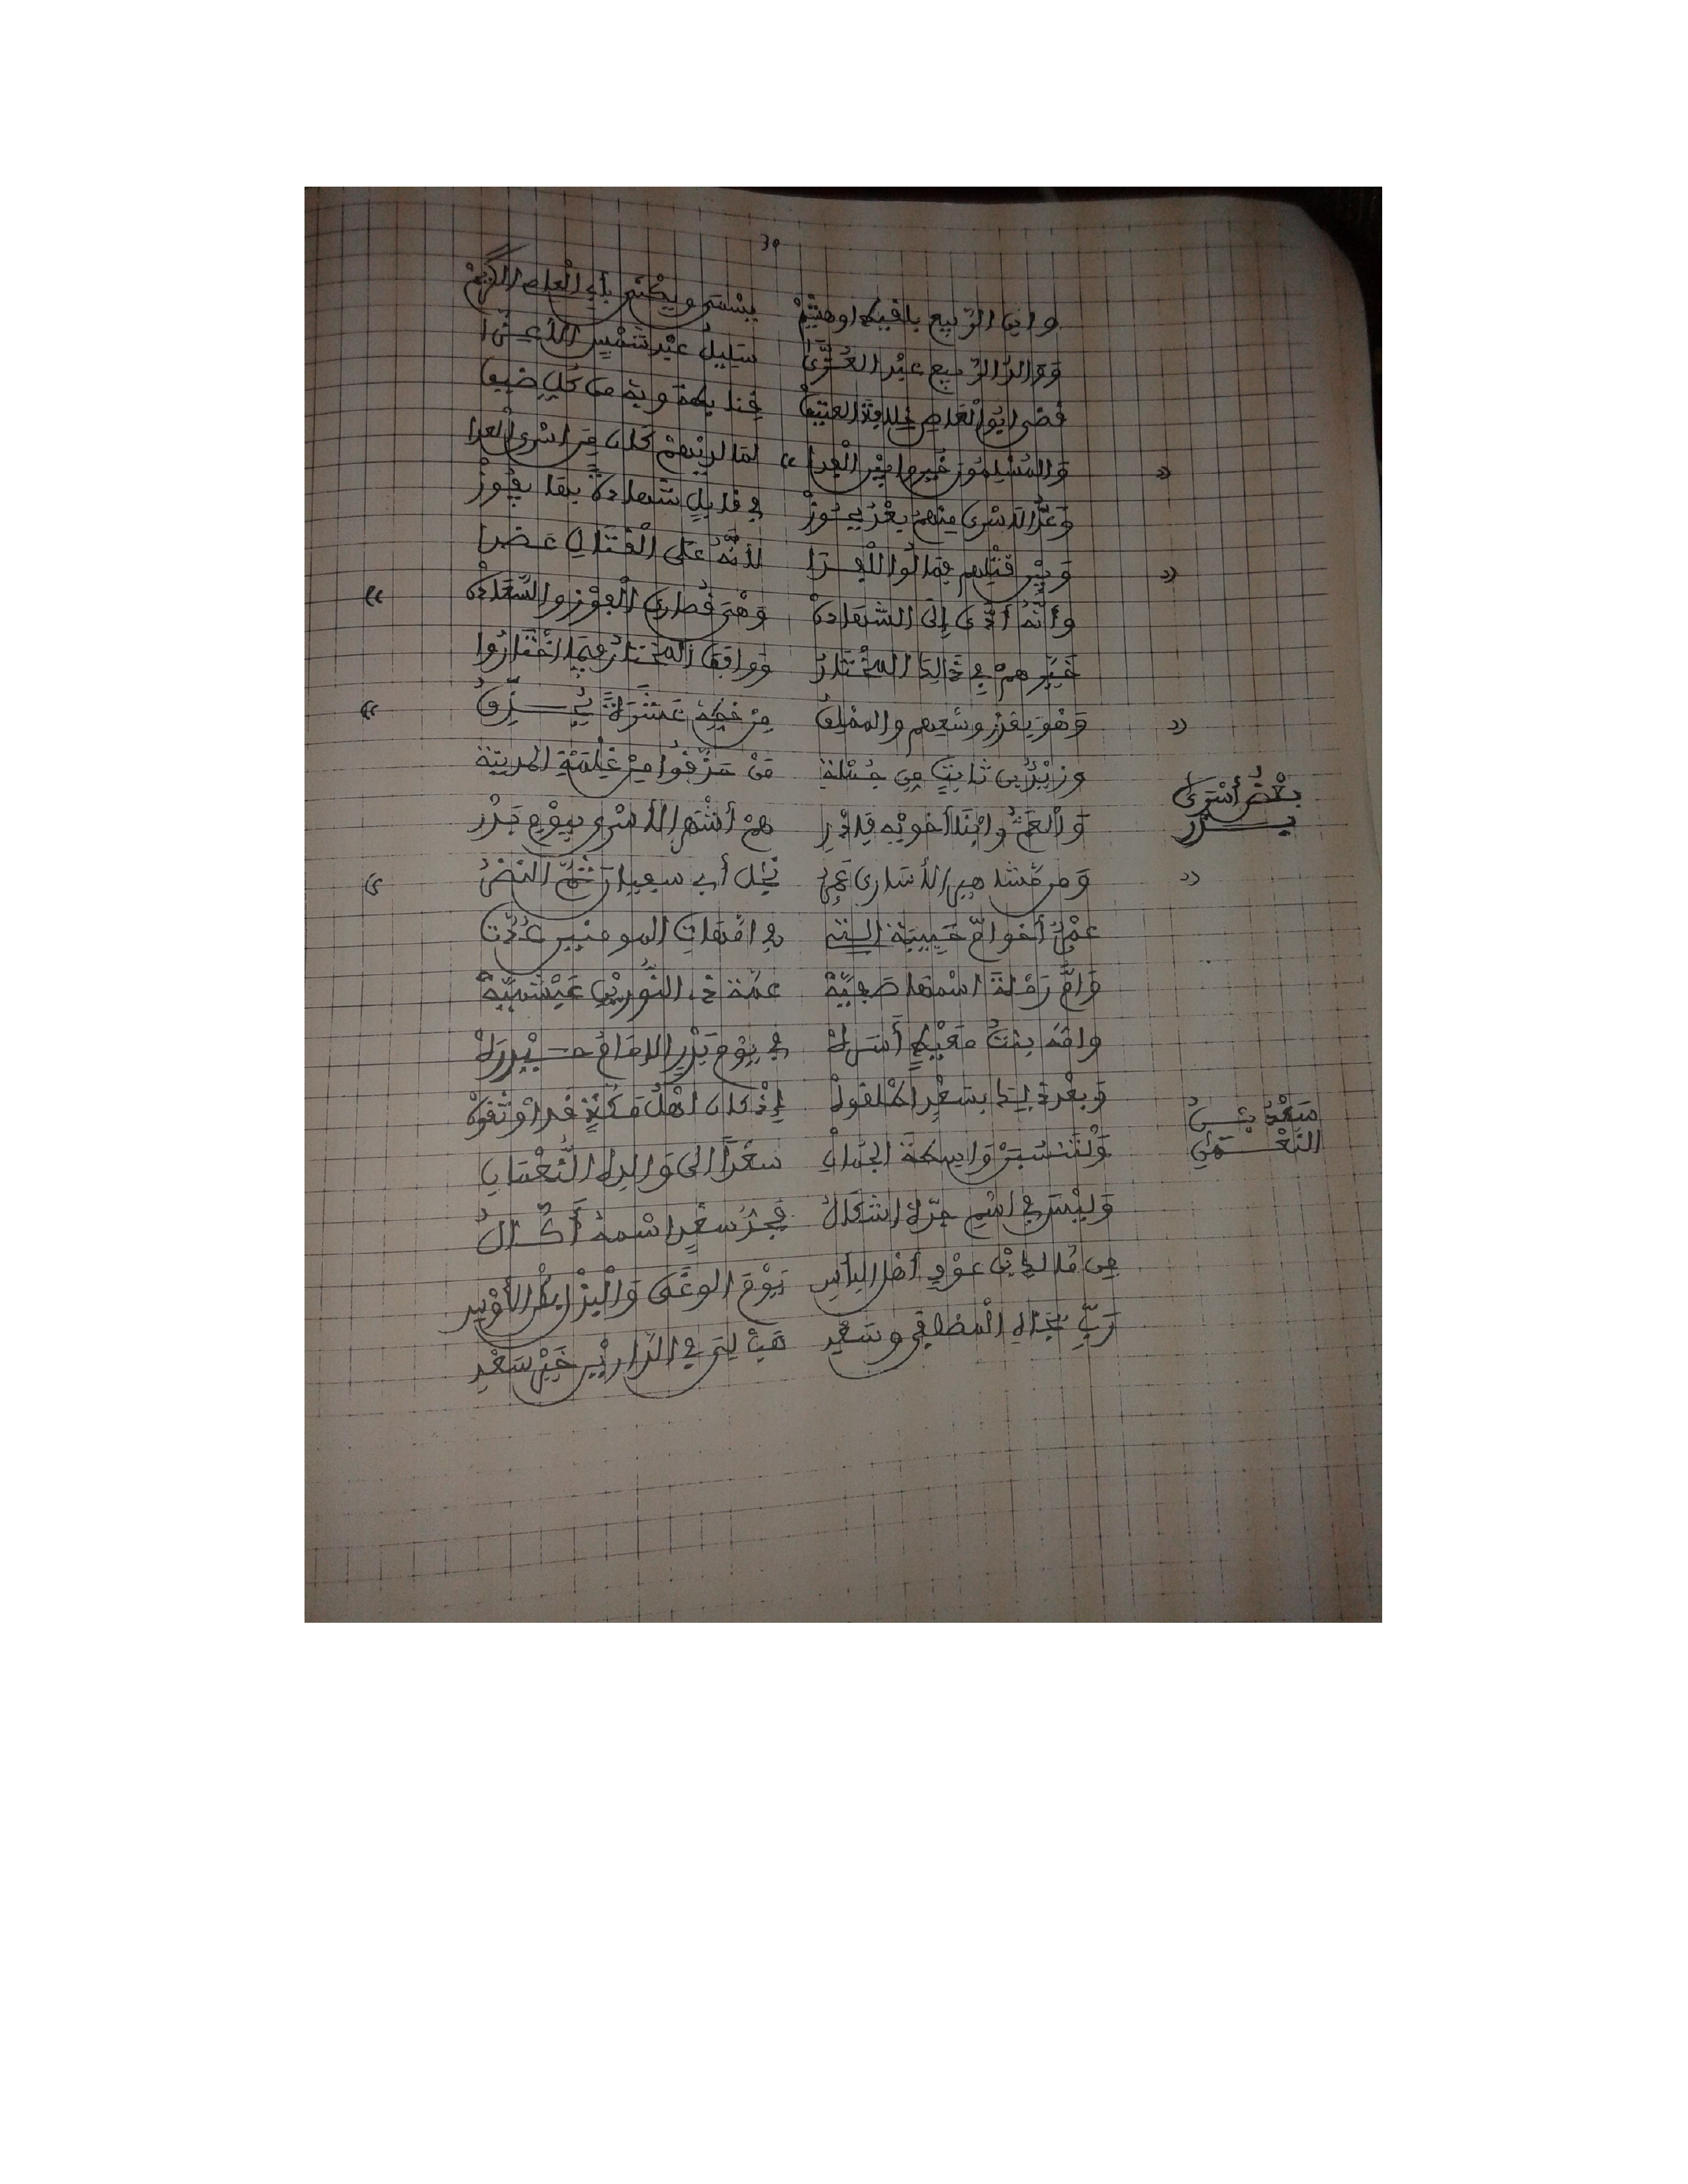 30
وابن الربيع بلقيط او هشيم يسمى ويكنى بأبي العاص الكريم
ووالد الربيع عبد العزى سليل عبد شمس الأعزا
قضى ابو العاص خلافة العتيق
والمسلمون خيروا بين الفدا لما لديهم كان من اسرى العدا
وعد الاسرى منهم بعد يحوز في قابل شهادة بها يفوز
وبين قتلهم فمالوا للفدا لأنه على القتال عضدا
وأنه أدى إلى الشهاده وهي قصارى الفوز والسعاده
خيرهم في ذالك المختار ووافق المختار فيما اختاروا
وهو بقدر وسعهم والمملق من خطه عشرة يحذق
وزيد بن ثابت من جملة من حذقوا من غلمة المدينة
بعض أسرى بدر
والعم وابنا أخويه فادر هم أشهر الأسرى بيوم بدر
ومن مشاهير الأسارى عمرو نجل أبي سفيان ثم النضر
عمرو أخو ام حبيبة التي في امهات المومنين عدت
وام رملة اسمها صفيه عمة ذي النورين عبشميه
وامه بنت معيط أسره في يوم بدر الامام حيدره
وبعد ذاك بسعد اطلقوه إذ كان اهل مكة قد اوثقوه
سعد بن النعمان
ولتنسبن واسطة الجمان سعدا الى والده النعمان
وليس في اسم جده اشكال فجد سعد اسمه أكال
من مالك بن عوف أهل البأس يوم الوغى والبذل بكر الأوس
رب بجاه المصطفى وسعد هب لي في الدارين خير سعد